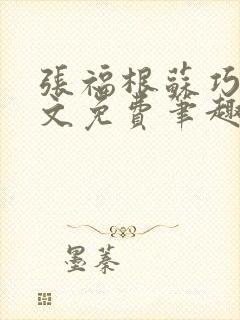 張福根蘇巧
文免費筆趣
墨蓁